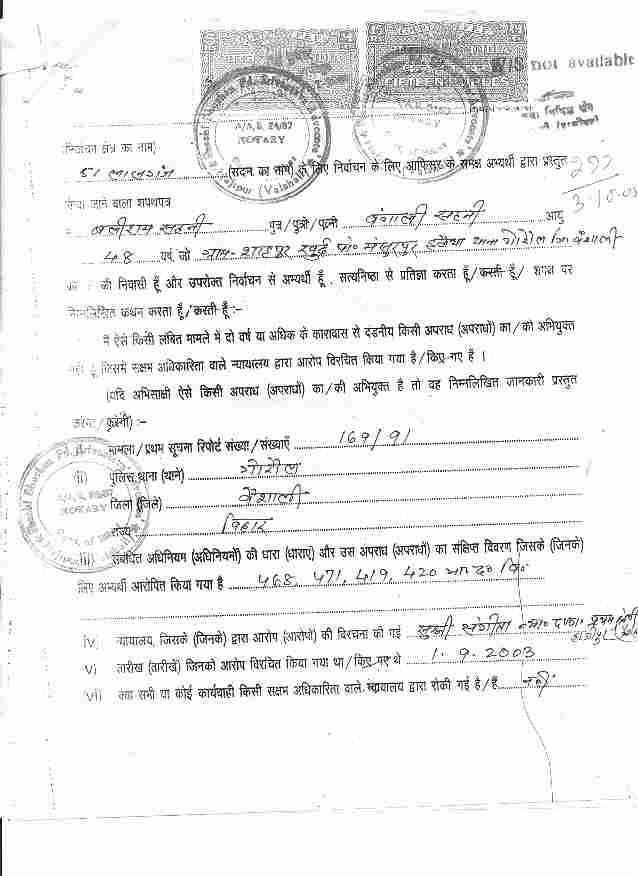 W/S not available
निर्वाचन क्षेत्र का नाम)
51 लालगंज (सदन का नाम) के लिए निर्वाचन के लिए आफिसर के समक्ष अभ्यर्थी द्वारा प्रस्तुत
किया जाने वाला शपथपत्र
बलीराम सहनी पुत्र/पुत्री/पत्नी बंगाली सहनी आयु
48 वर्ष, जो ग्राम-शाहपुर खुर्द पो० मंसुरपुर थाना गोरौल जि० वैशाली
का की निवासी हूँ और उपरोक्त निर्वाचन से अभ्यर्थी हूँ, सत्यनिष्ठा से प्रतिज्ञा करता हूँ/करती हूँ/ शपथ पर
निम्नलिखित कथन करता हूँ/करती हूँ :-
मैं ऐसे किसी लंबित मामले में दो वर्ष या अधिक के कारावास से दंडनीय किसी अपराध (अपराधों) का/की अभियुक्त
नहीं हूँ जिसमें सक्षम अधिकारिता वाले न्यायालय द्वारा आरोप विरचित किया गया है/किए गए हैं ।
(यदि अभिसाक्षी ऐसे किसी अपराध (अपराधों) का/की अभियुक्त है तो वह निम्नलिखित जानकारी प्रस्तुत
करेगा/करेगी) :-
मामला/प्रथम सूचना रिपोर्ट संख्या/संख्याएँ 169/91
(ii) पुलिस थाना (थाने) गोरौल
जिला (जिले) वैशाली
राज्य बिहार
iii) संबंधित अधिनियम (अधिनियमों) की धारा (धाराएं) और उस अपराध (अपराधों) का संक्षिप्त विवरण जिसके (जिनके)
लिए अभ्यर्थी आरोपित किया गया है 468, 471, 419, 420 भा० द० वि०
iv) न्यायालय, जिसके (जिनके) द्वारा आरोप (आरोपों) की विरचना की गई सुश्री संगीता न्या० दण्डा० प्रथम श्रेणी हाजीपुर
v) तारीख (तारीखें) जिनको आरोप विरचित किया गया था/किए गए थे 1.9.2003
vi) क्या सभी या कोई कार्यवाही किसी सक्षम अधिकारिता वाले न्यायालय द्वारा रोकी गई है/हैं नहीं